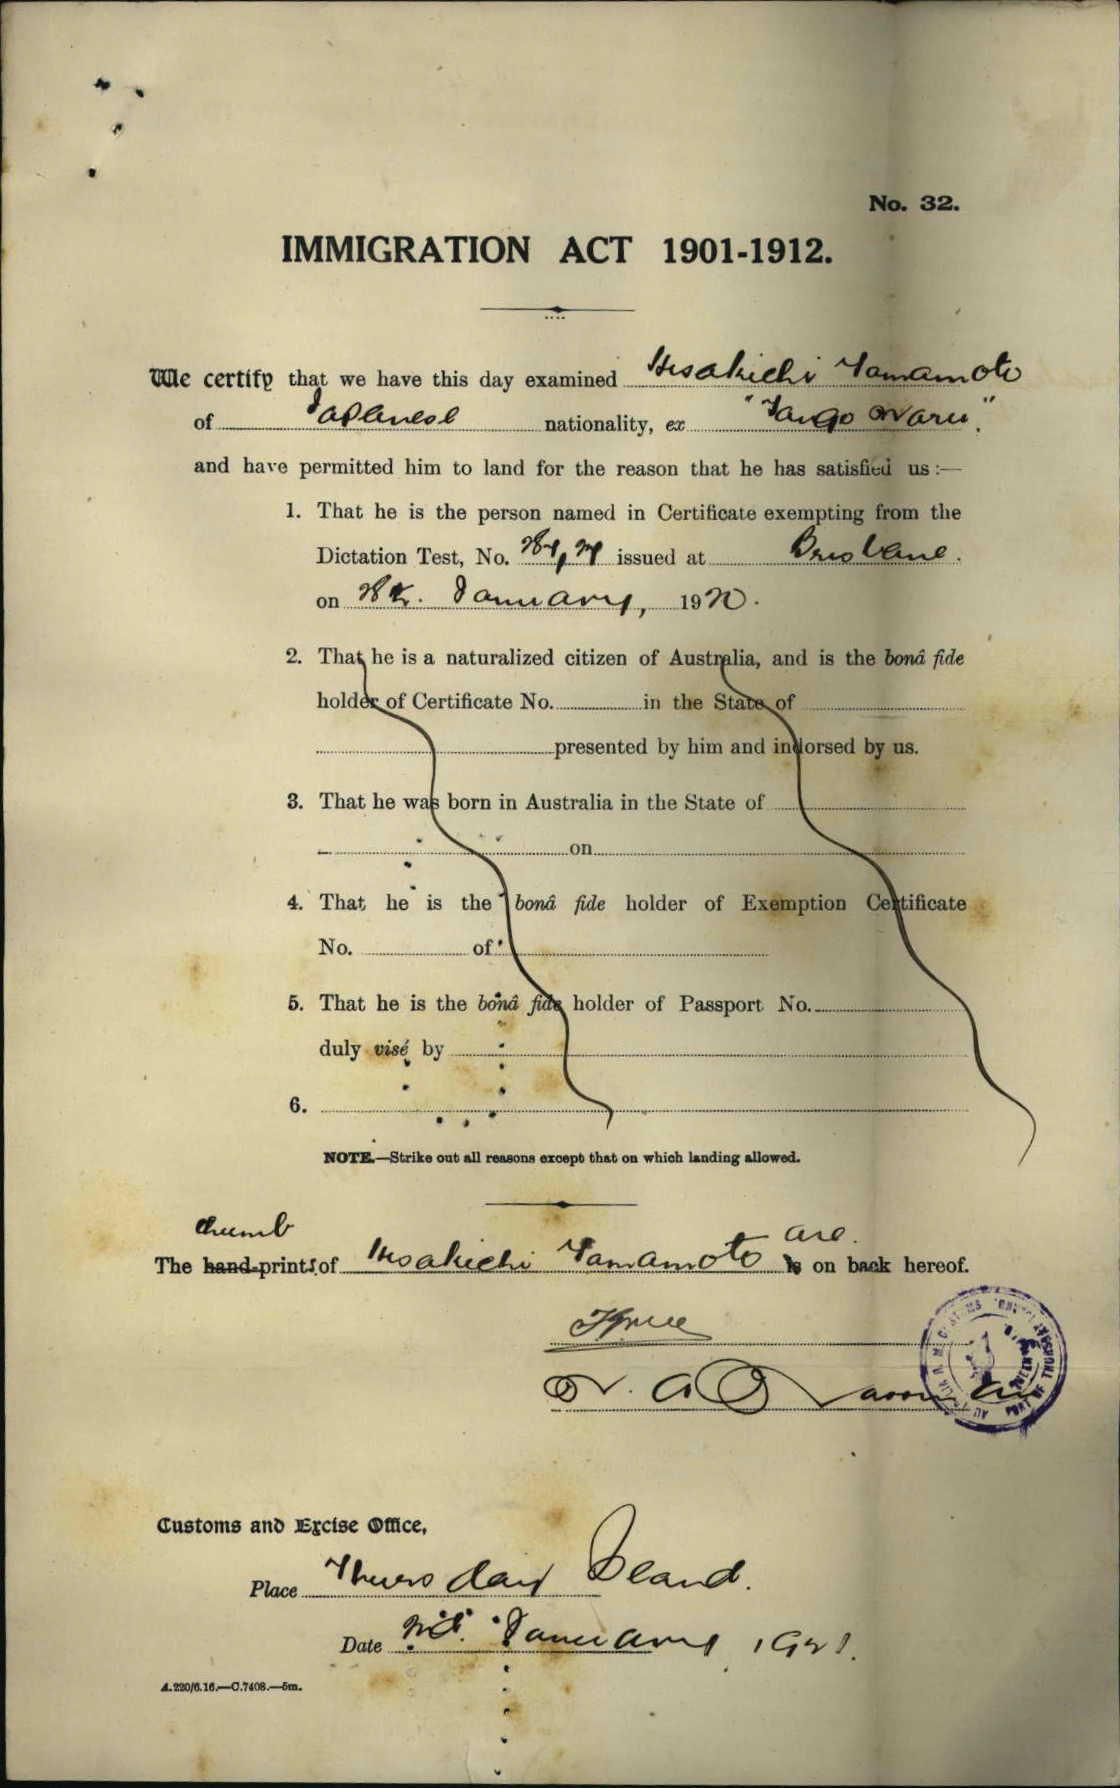 No. 32.
IMMIGRATION ACT 1901-1912.
We certify that we have this day examined Hisakichi Yamamoto
of Japanese nationality, ex "Tango Maru".
and have permitted him to land for the reason that he has satisfied us :—
1. That he is the person named in Certificate exempting from the
Dictation Test, No. issued at Brisbane.
on January, 1920.
2. That he is a naturalized citizen of Australia, and is the bonâ fide
holder of Certificate No. in the State of
presented by him and indorsed by us.
3. That he was born in Australia in the State of
on
4. That he is the bonâ fide holder of Exemption Certificate
No. of
5. That he is the bonâ fide holder of Passport No.
duly visé by
6.
NOTE.—Strike out all reasons except that on which landing allowed.
thumb are.
The hand-prints of Hisakichi Yamamoto is on back hereof.
PORT OF THURSDAY ISLAND
Customs and Excise Office,
Place Thursday Island.
Date January 1921.
A.220/6.16.—C.7408.—5m.